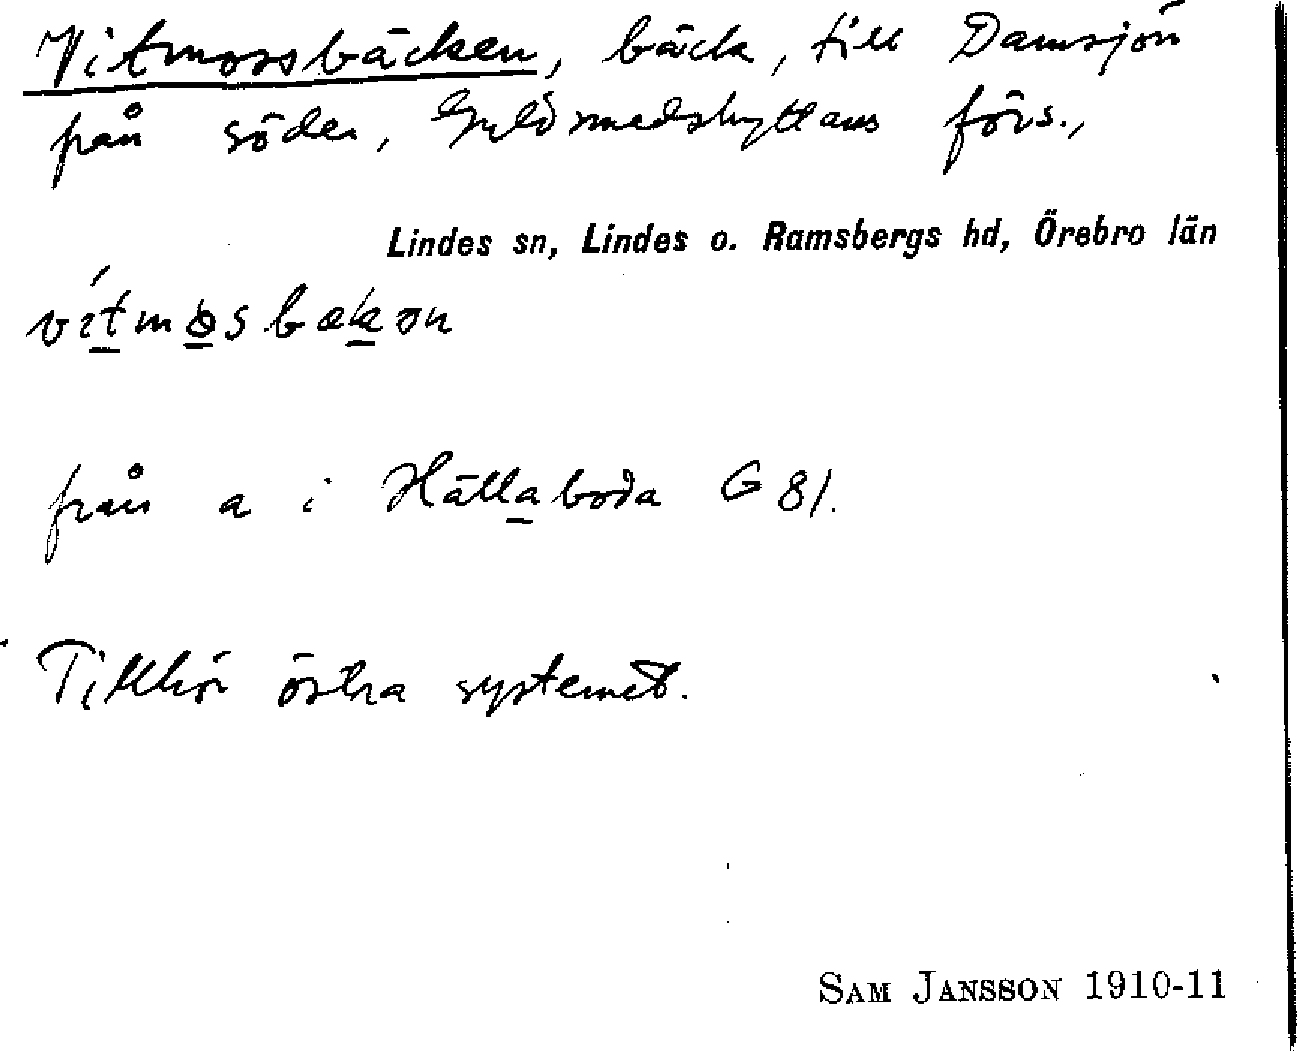 Vitmossbäcken, bäck, till Damsjön
från söder, Guldsmedshyttans förs.,
Lindes sn, Lindes o. Ramsbergs hd, Örebro län
från a i Hällaboda G 81.
Tillhör östra systemet.
SAM JANSSON 1910-11